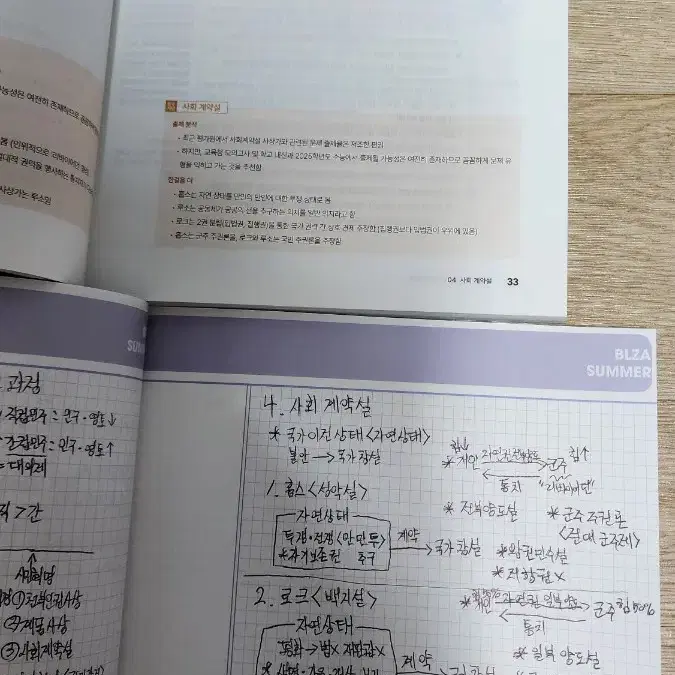 사회 계약설
출제 분석
- 최근 평가원에서 사회계약설 사상가와 관련된 문제 출제율은 저조한 편임
- 하지만, 교육청 모의고사 및 학교 내신과 2025학년도 수능에서 출제될 가능성은 여전히 존재하므로 꼼꼼하게 문제 유
형을 익히고 가는 것을 추천함
한걸음 더
- 홉스는 자연 상태를 만인의 만인에 대한 투쟁 상태로 봄
- 루소는 공동체가 공공의 선을 추구하는 의지를 일반 의지라고 함
- 로크는 2권 분립(입법권, 집행권)을 통한 국가 권력 간 상호 견제 주장함 (집행권보다 입법권이 우위에 있음)
- 홉스는 군주 주권론을, 로크와 루소는 국민 주권론을 주장함
04 사회 계약설 33
능성은 여전히 존재하므로 꼼꼼
사상가는 루소임
BLZA
SUMMER
과정
직접민주 = 민주·영도↓
간접민주 = 민주·영도↑
= 대의제
직 > 간
시민혁명
①천부인권사상
②계몽사상
③사회계약설
4. 사회 계약설
* 국가 이전 상태 <자연상태>
불안 → 국가 창설
1. 홉스 <성악설>
자연상태
투쟁·전쟁 <만만투>
* 자기보존권 추구
계약
→ 국가 창설
힘↓ 힘↑
* 개인 자연권 전부양도 군주
통치 "리바이어던"
* 전부양도설
* 군주 주권론
<절대 군주제>
* 왕권민수설
* 저항권 X
2. 로크 <백지설>
자연상태
평화 → 법X 재판관X
계약
자연권 일부양도 군주 힘50%
통치
* 일부 양도설